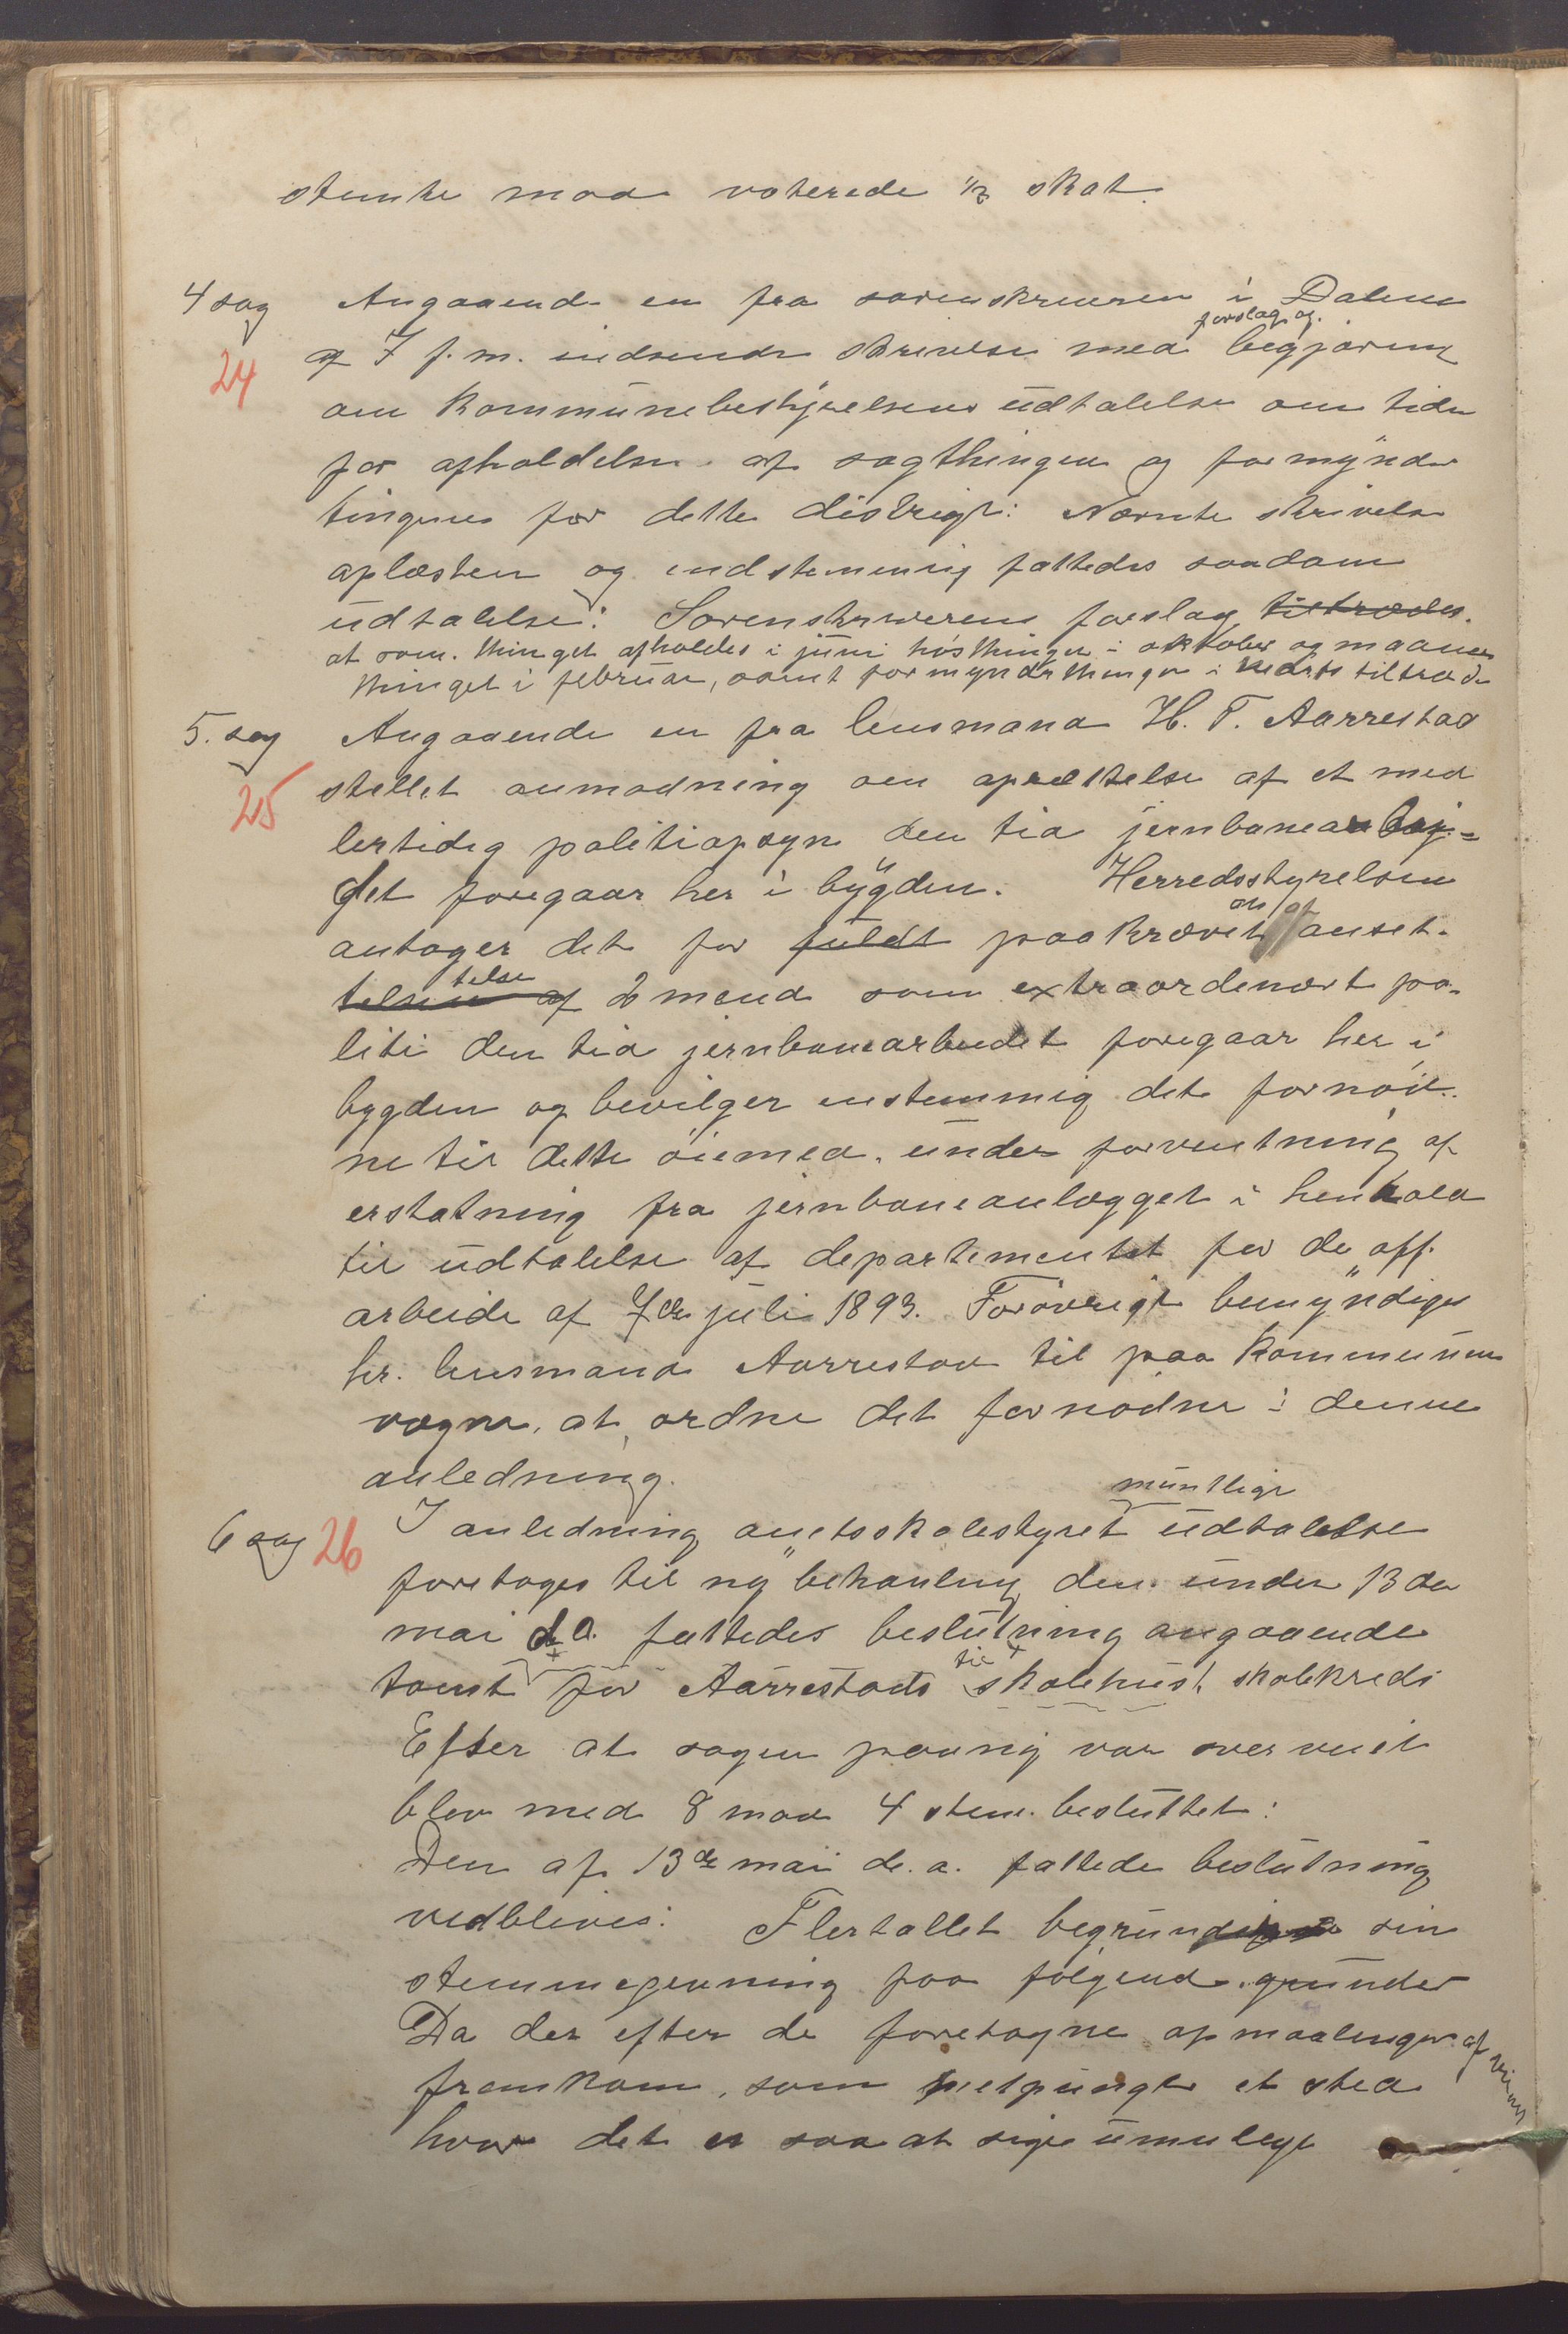 stemte mod voterede ½ skat.
4 sag Angaaende en fra sorenskriveren i Dalene
24 af 7 f. m. indsendt skrivelse med forslag og begjæring
om kommunebestyrelsens udtalelse om tiden
for afholdelse af sagthingene og formynder
tingene for dette distrigt: Nævnte skrivelse
oplæstes og endstemmig fattedes saadan
udtalelse: Sorenskriverens forslag tiltrædes.
at som. thinget afholdes i juni høstthinget i oktober og maaneds
thinget i februar, samt formynderthinget i marts tiltrædes
5. sag Angaaende en fra lensmand H. T. Aarrestad
25 stillet anmodning om oprettelse af et mid
lertidig politiopsyn den tid jernbanearbej-
det foregaar her i bygden. Herredsstyrelsen
antager det for fuldt paakrævet at anset-
telsen af telse 2 mænd som extraordenært po-
liti den tid jernbanearbeidet foregaar her i
bygden og bevilger enstemmig det fornød-
ne til dette øiemed, under forventning af
erstatning fra jernbaneanlægget i henhold
til udtalelse af departementet for de off.
arbeide af 7de juli 1893. Forøvrigt bemyndiges
hr. lensmand Aarrestad til paa kommunens
vegne, at ordne det fornødne i denne
anledning.
6 sag 26 I anledning amtsskolestyret muntlige udtalelse
foretoges til ny behandling den under 13de
mai d. a. fattedes beslutning angaaende
tomt for Aarrestads til skolehus skolekreds
Efter at sagen paany var overveiet
blev med 8 mod 4 stem. besluttet:
Den af 13de mai d. a. fattede beslutning
vedblives: Flertallet begrunder sin
stemmegivning paa følgende grunder
Da der efter de foretagne opmaalinger af veien
fremkom, som midpungt et sted
hvor det er saa at sige umuligt